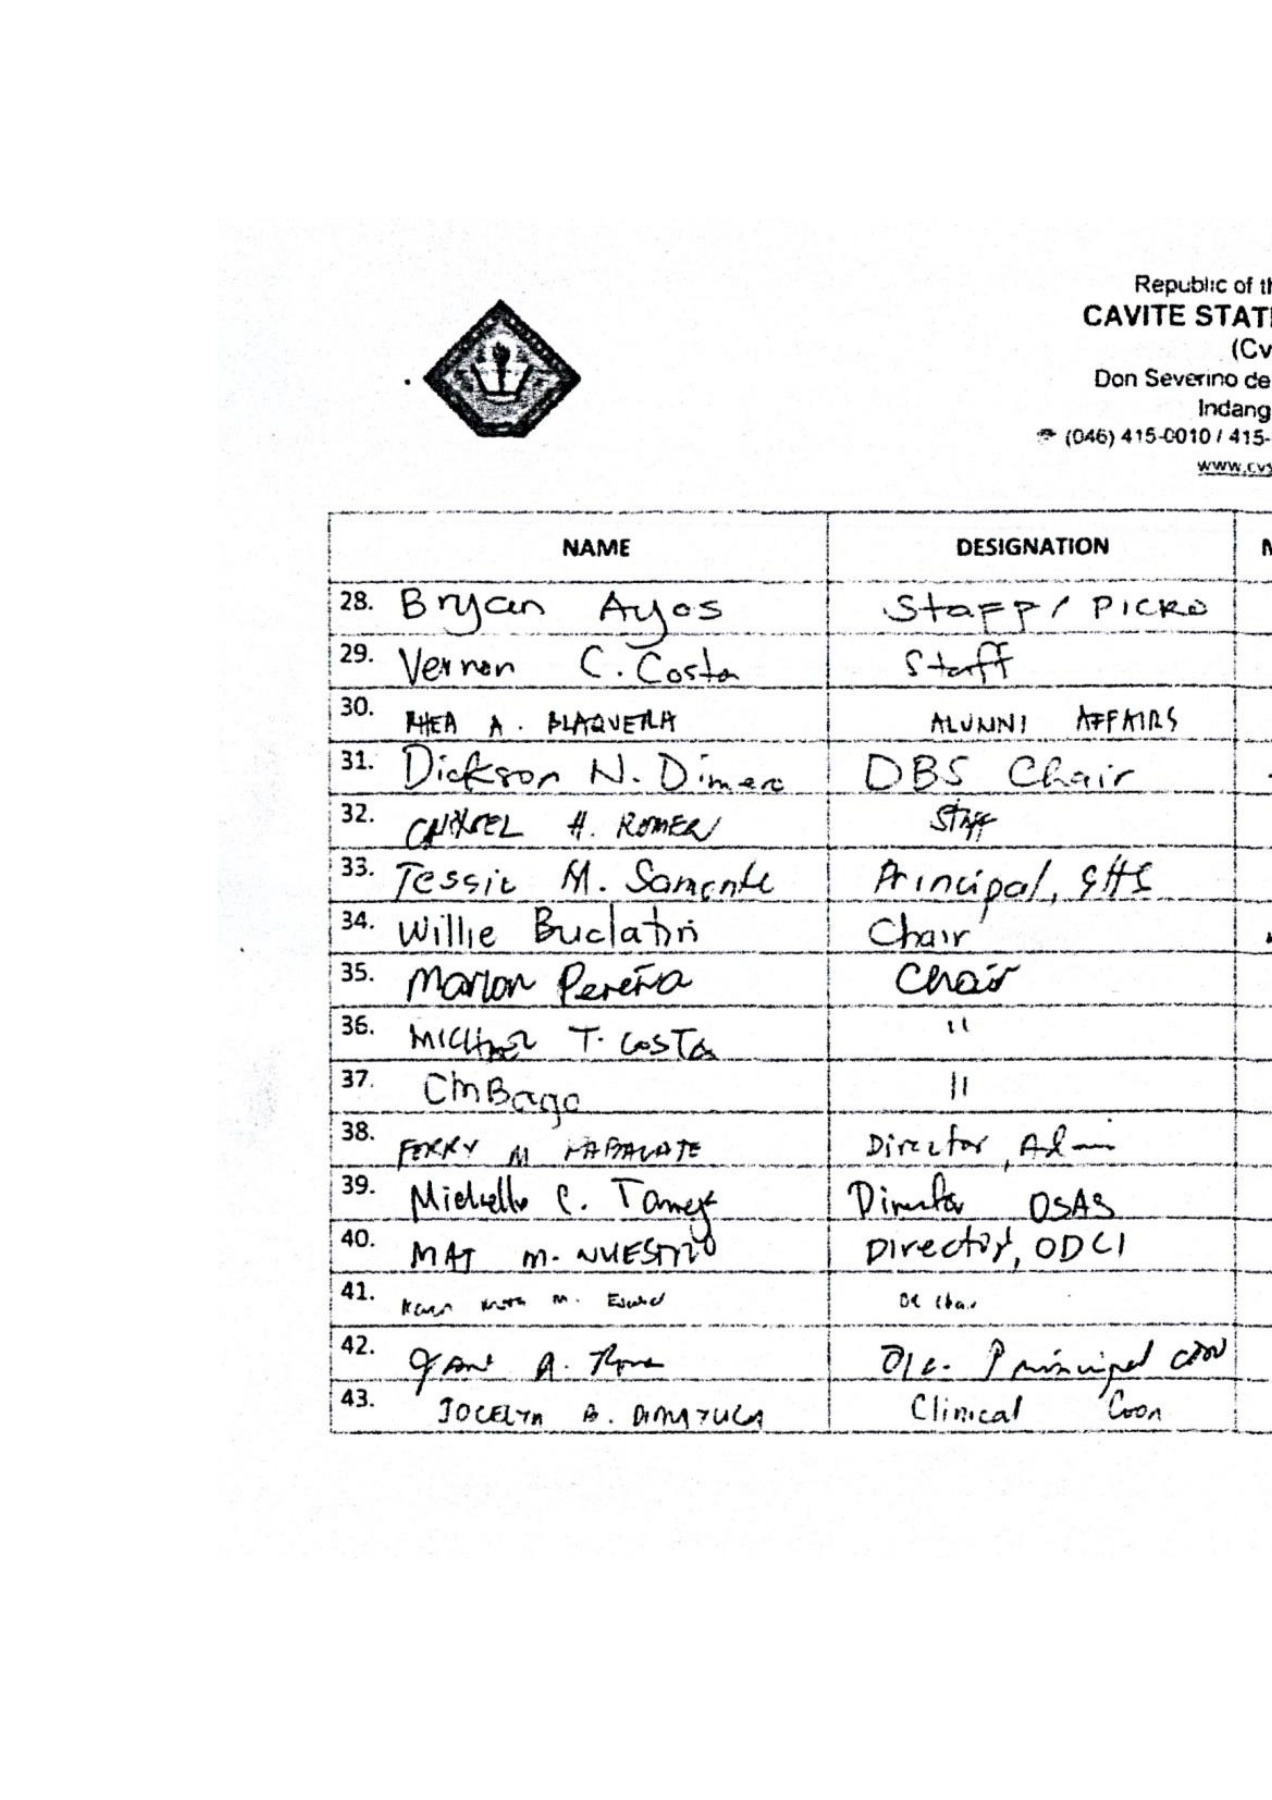 Republic of th
CAVITE STATE
(Cv
Don Severino de
Indang
(046) 415-0010 / 415-
www.cvs
NAME DESIGNATION
28. Bryan Ayos Staff / PICRO
29. Vernon C. Costa Staff
30. RHEA A. BLAQUERA ALUMNI AFFAIRS
31. Dickson N. Dimero DBS Chair
32. H. ROMEN STAFF
33. Tessie M. Samonte Principal, SHS
34. Willie Buclatin Chair
35. Marlon Pereña Chair
36. MICHAEL T. COSTA "
37. CmBago "
38. FERRY M Director, Adm
39. Michelle C. Director OSAS
40. M. NUESTRO Director, ODCI
41. M. Chair
42. A. OIC. Principal
43. JOCELYN B. Clinical Coor